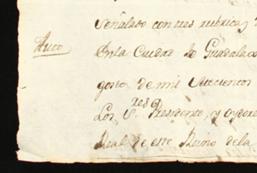 Señalado con tres rubricas
Auto
En la Ciudad de Guadala
gosto de mil setecientos
Los S.res Presidente, y Oydore
Real de este Reino de la